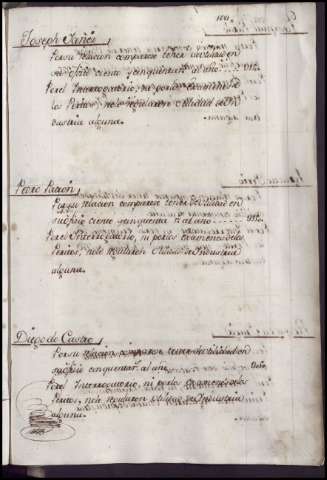 Joseph Yañez
Por su relacion comparece tener utilidad en
su ofizio ciento y cinquenta rs al año
Por el Interrogatorio, ni por los Examenes de
los Peritos, no le regularon Utilidad de In
dustria alguna.
Pedro Patiön
Por su relacion comparece tener utilidad en
su ofizio ciento y cinquenta rs al año
Por el Interrogatorio, ni por los Examenes de los
Peritos, no le regularon Utilidad de Industria
alguna.
Diego de Castro
Por su relacion comparece tener utilidad en
su ofizio cinquenta rs al año
Por el Interrogatorio, ni por los Examenes de los
Peritos, no le regularon Utilidad de Industria
alguna.